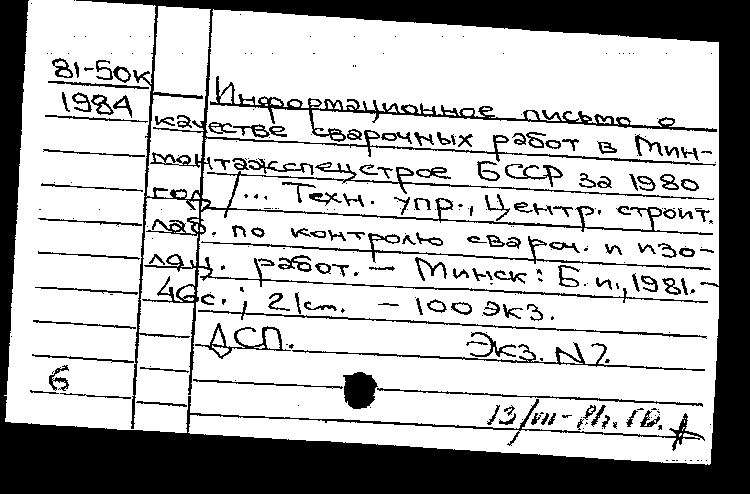 81-50к
1984
Информационное письмо о
качестве сварочных работ в Мин-
монтажспецстрое БССР за 1980
год /... Техн. упр., Центр. строит.
лаб. по контролю свароч. и изо-
ляц. работ. — Минск: Б.и., 1981. —
46с.; 21 см. — 100 экз.
ДСП. Экз. N 7.
6
13/VIII-81г.